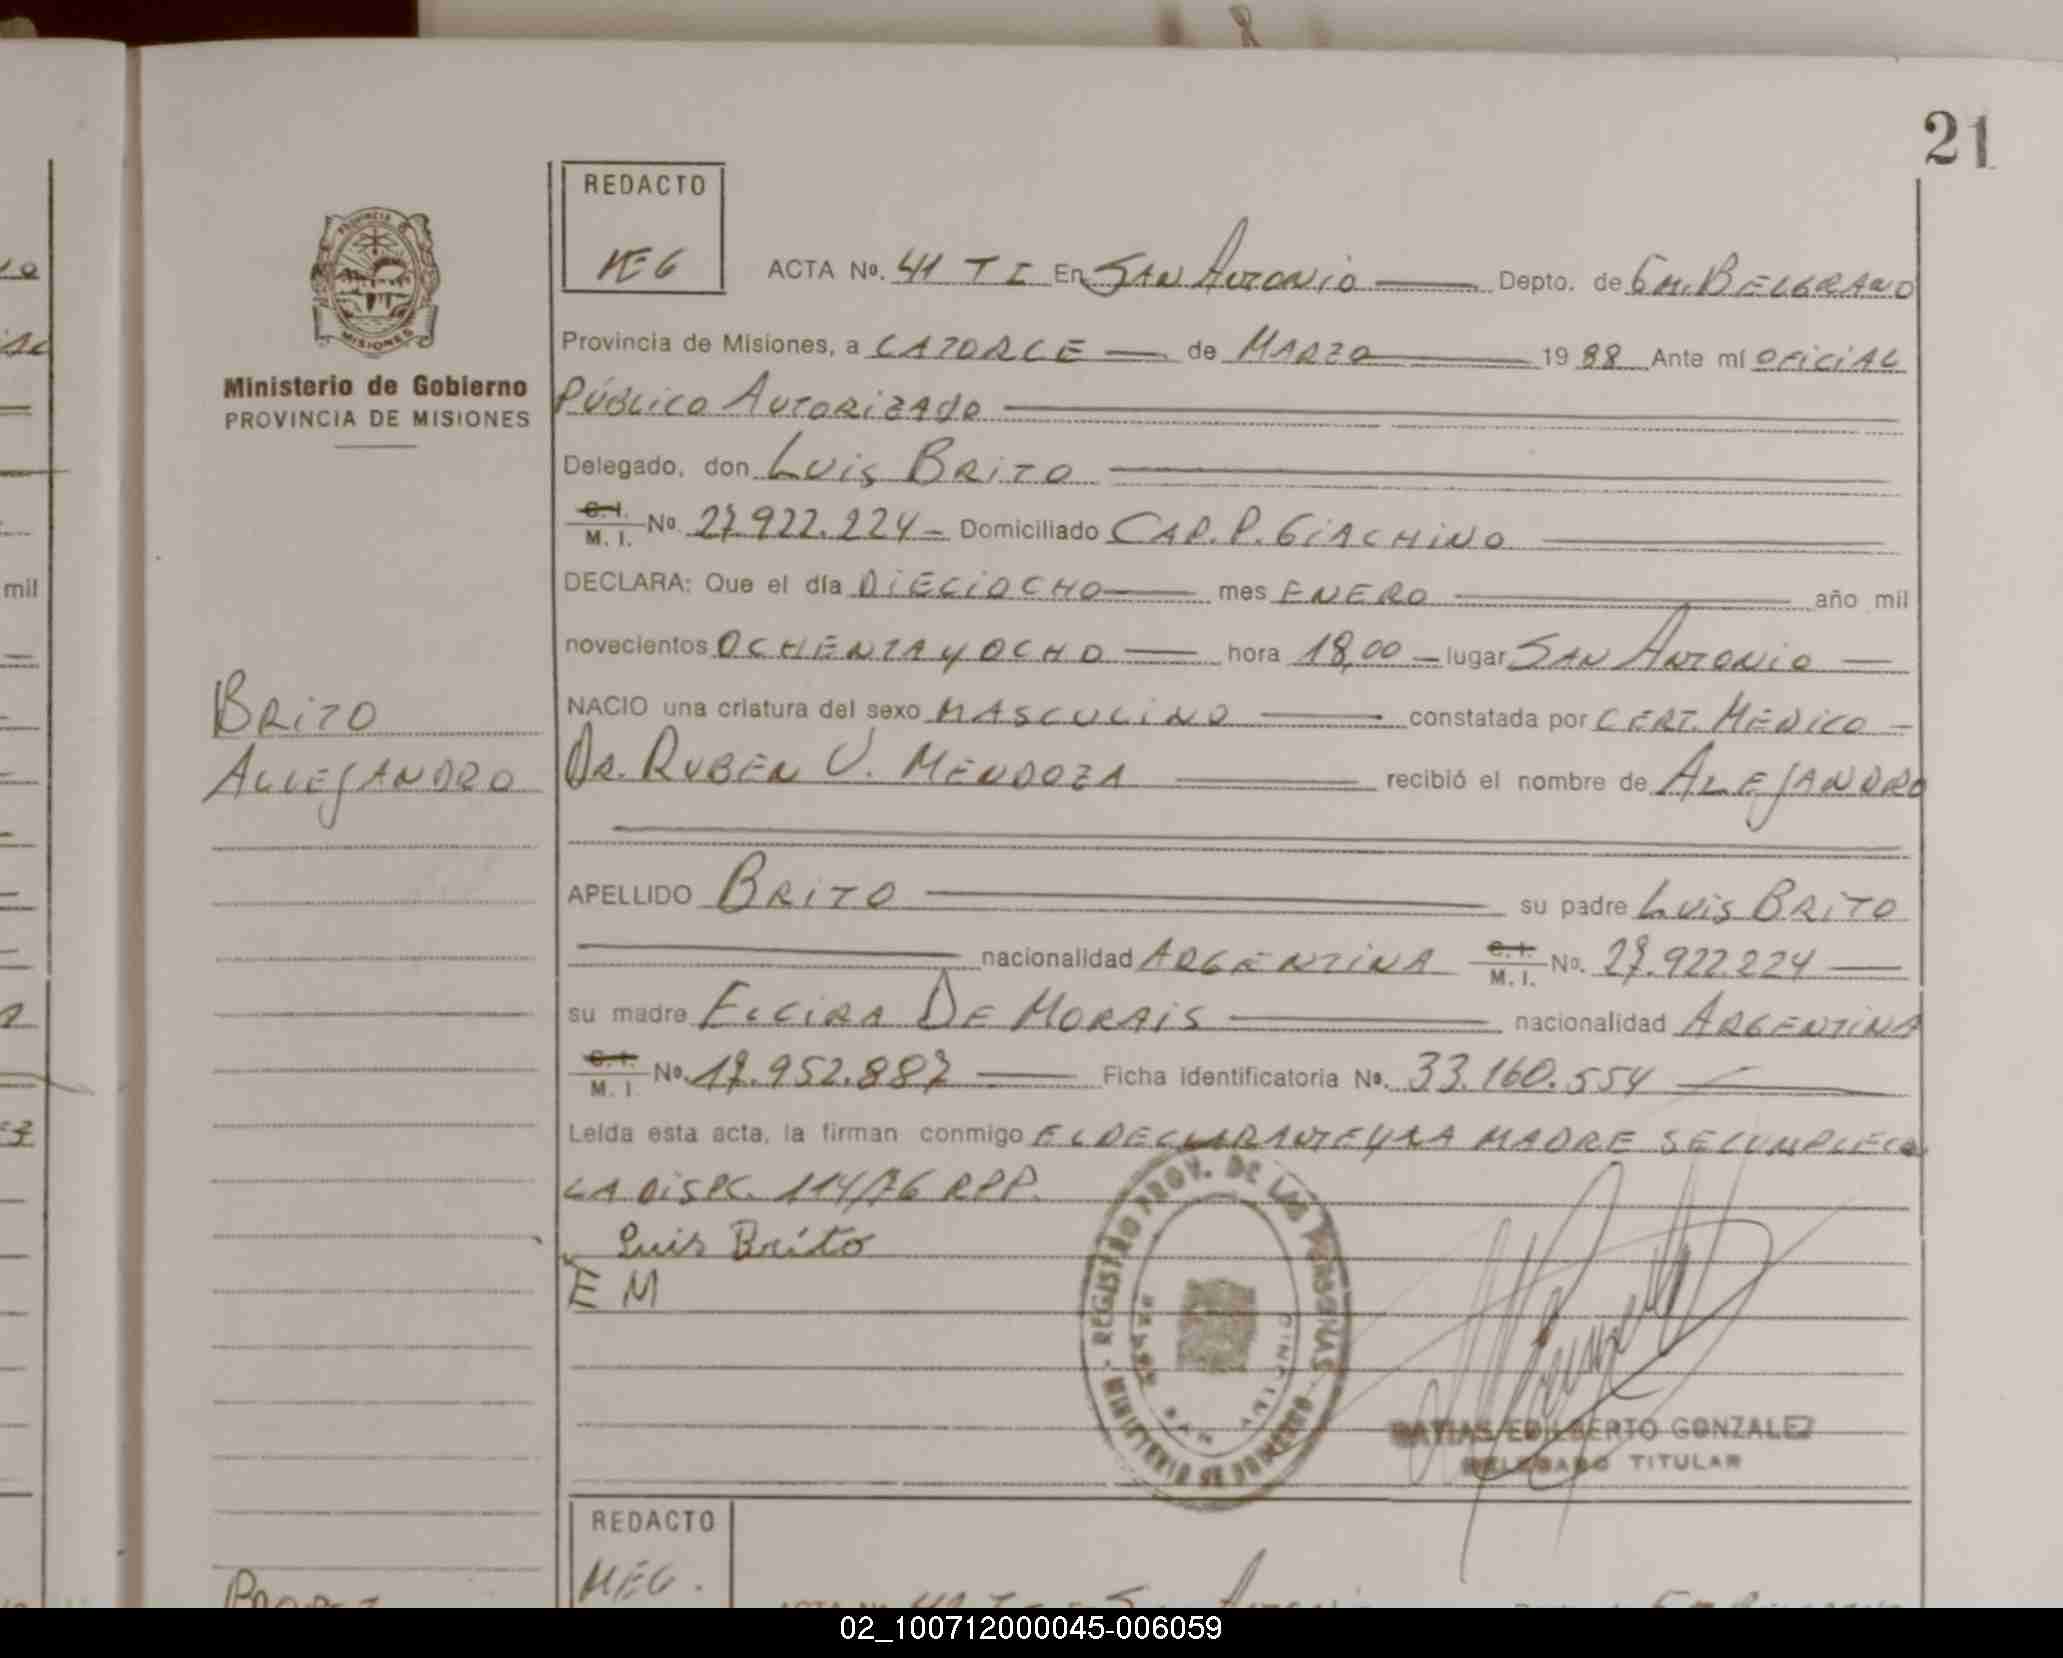 21
REDACTO
MEG
ACTA Nº. 41 T I En SAN ANTONIO Depto. de GM. BELGRANO
Ministerio de Gobierno
PROVINCIA DE MISIONES
Provincia de Misiones, a CATORCE de MARZO 19 88 Ante mí OFICIAL
PÚBLICO AUTORIZADO
Delegado, don LUIS BRITO
C. I.
M. I. Nº. 27.922.224 - Domiciliado CAP. P. GIACHINO
DECLARA: Que el día DIECIOCHO mes ENERO año mil
novecientos OCHENTA Y OCHO hora 18,00 lugar SAN ANTONIO
BRITO
ALLEJANDRO
NACIO una criatura del sexo MASCULINO constatada por CERT. MEDICO
DR. RUBEN U. MENDOZA recibió el nombre de ALEJANDRO
APELLIDO BRITO su padre LUIS BRITO
nacionalidad ARGENTINA C. I. M. I. Nº. 27.922.224
su madre ELCIRA DE MORAIS nacionalidad ARGENTINA
C. I.
M. I. Nº. 17.952.887 Ficha identificatoria Nº. 33.160.554
Leída esta acta, la firman conmigo EL DECLARANTE Y LA MADRE SE CUMPLE CO
LA DISPC. 114/76 RPP.
Luis Brito
E M
REGISTRO PROV. DE LAS PERSONAS
MINISTERIO DE GOBIERNO
MATIAS EDILBERTO GONZALEZ
DELEGADO TITULAR
REDACTO
MEG.
mil
02_100712000045-006059